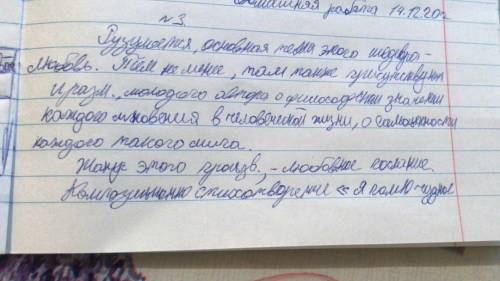 работа 14.12.20
№3
Разумеется, основная тема этого шедевра -
любовь. Тем не менее, там также присутствуют
и разм. молодого автора о философском значении
каждого мгновения в человеческой жизни, о самоценности
каждого такого мига.
Жанр этого произв. - любовное послание.
Композиционно стихотворение «Я помню чудное